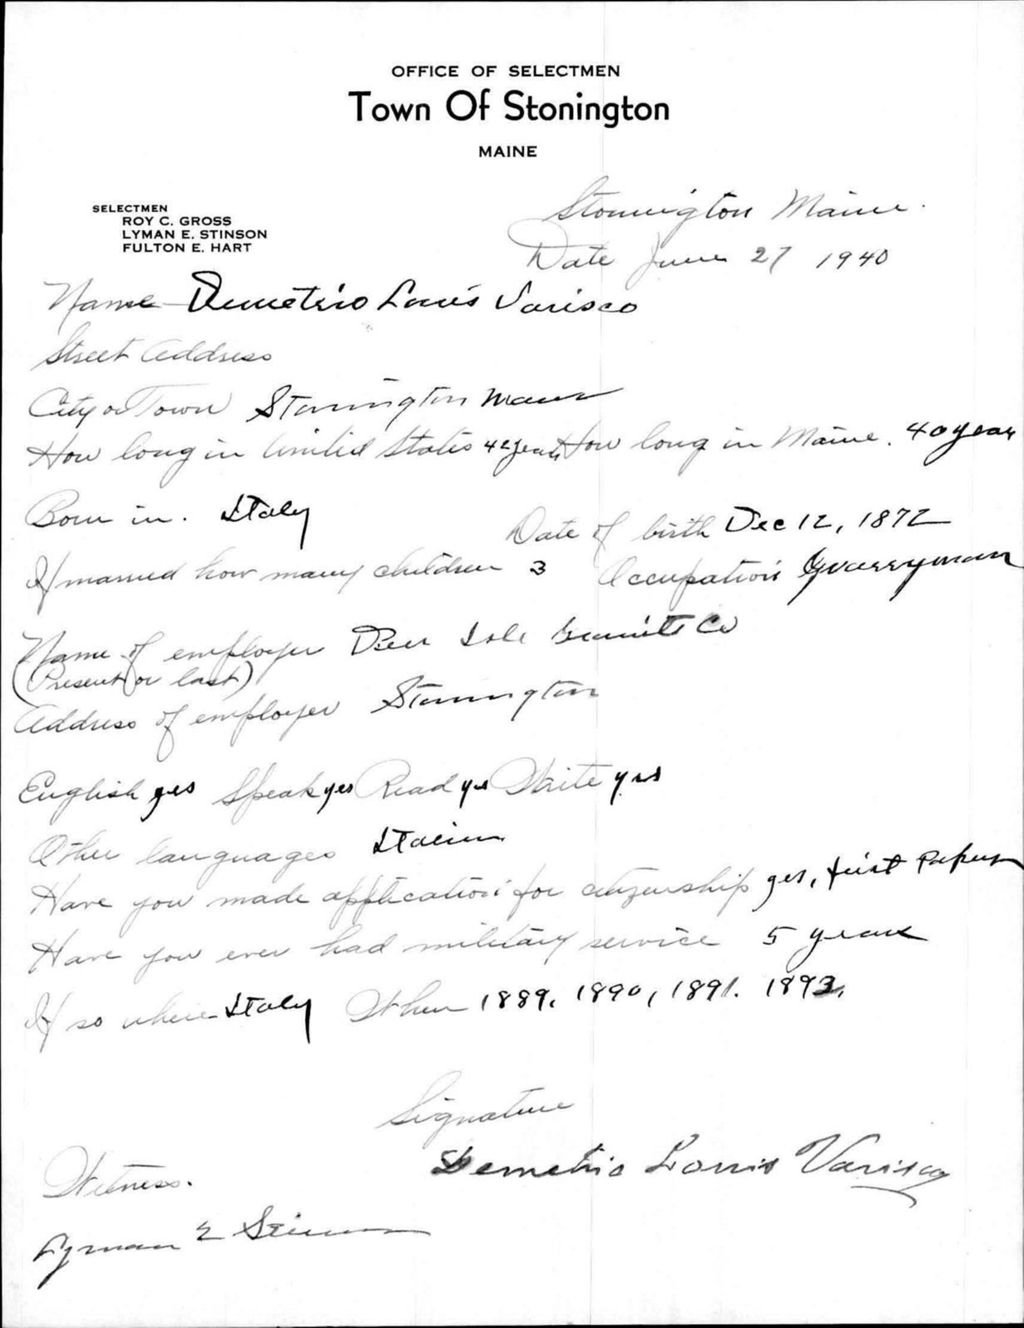 OFFICE OF SELECTMEN
Town Of Stonington
MAINE
SELECTMEN
ROY C. GROSS
LYMAN E. STINSON
FULTON E. HART
Stonington Maine.
Date June 27 1940
Name Demetrio Louis Varisco
Street Address
City or Town Stonington Maine
How long in United States 42 years How long in Maine. 40 years
Born in. Italy Date of birth Dec 12, 1872
If married how many children 3 Occupation Quarryman
Name of employer Deer Isle Granite Co
(Present or last)
Address of employer Stonington
English yes Speak yes Read yes Write yes
Other languages Italian
Have you made application for citizenship yes, first Papers
Have you ever had military service 5 years
If so where Italy When 1889, 1890, 1891. 1893.
Signature
Demetrio Louis Varisco
Witness.
Lyman E Stinson